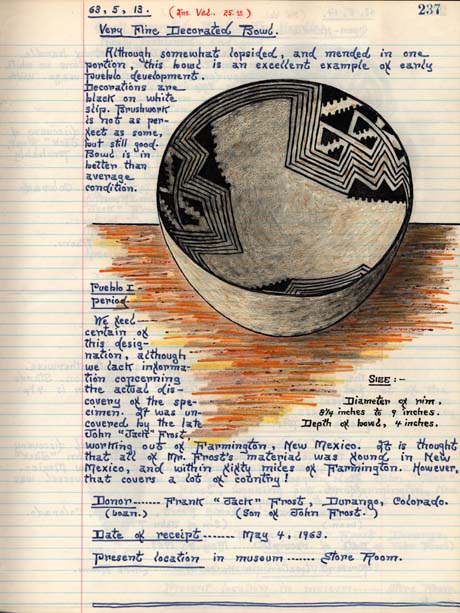 63, 5, 13. (Ins. Val., 25.00) 237
Very Fine Decorated Bowl.
Although somewhat lopsided, and mended in one
portion, this bowl is an excellent example of early
Pueblo development.
Decorations are
black on white
slip. Brushwork
is not as per-
fect as some,
but still good.
Bowl is in
better than
average
condition.
Pueblo I
period
We feel
certain of
this desig-
nation, although
we lack informa-
tion concerning
the actual dis-
covery of the spe-
cimen. It was un-
covered by the late
John "Jack" Frost
working out of Farmington, New Mexico. It is thought
that all of Mr. Frost's material was found in New
Mexico, and within fifty miles of Farmington. However,
that covers a lot of country!
Size :-
Diameter of rim,
8 3/4 inches to 9 inches.
Depth of bowl, 4 inches.
Donor ------- Frank "Jack" Frost, Durango, Colorado.
(Loan.) (Son of John Frost.)
Date of receipt ------- May 4, 1963.
Present location in museum ------ Store Room.